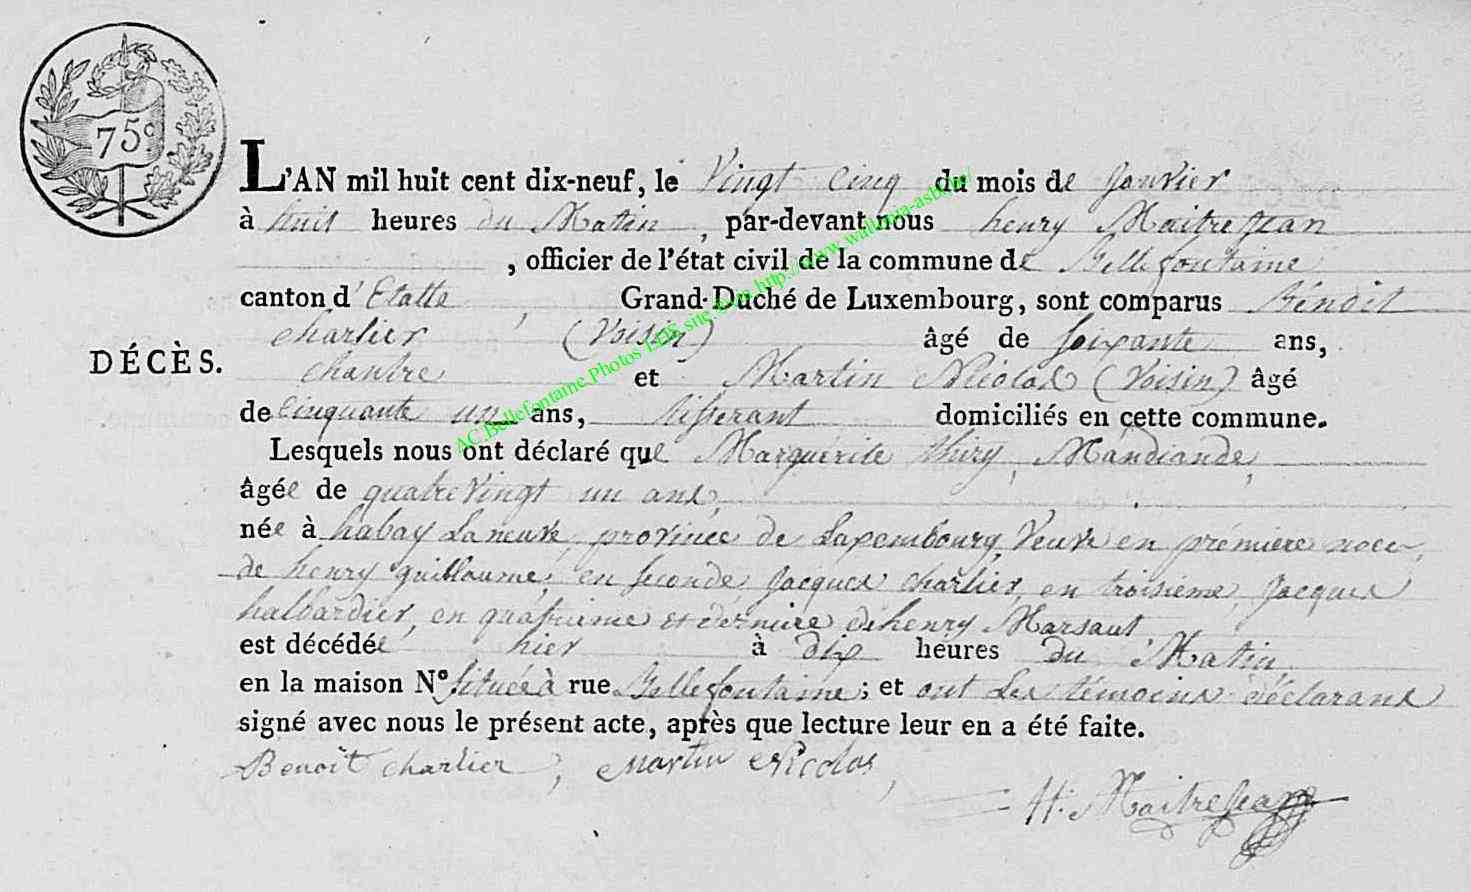 75c
L'AN mil huit cent dix-neuf, le Vingt Cinq du mois de Janvier
à huit heures du Matin, par-devant nous henry Maitrejean
, officier de l'état civil de la commune de Bellefontaine
canton d'Etalle, Grand-Duché de Luxembourg, sont comparus Bénoit
Charlier (Voisin) âgé de soixante ans,
DÉCÈS.
Chantre et Martin Nicolas (Voisin) âgé
de Cinquante un ans, tisserant domiciliés en cette commune.
Lesquels nous ont déclaré que Marguérite thiry, Mandiande,
âgée de quatre Vingt un ans,
née à habay La neuve, province de Luxembourg, Veuve en prémiere noce
de henry guillaume, en seconde, Jacques Charlier, en troisieme, Jacques
halbardier, en quatrieme et derniere de henry Marsaut,
est décédée hier à dix heures du Matin
en la maison N° située à rue Bellefontaine; et ont Les témoins déclarans
signé avec nous le présent acte, après que lecture leur en a été faite.
Benoit Charlier, Martin Nicolas,
H. Maitrejean
AC Bellefontaine Photos
http://www.wallonia-asbl.be/